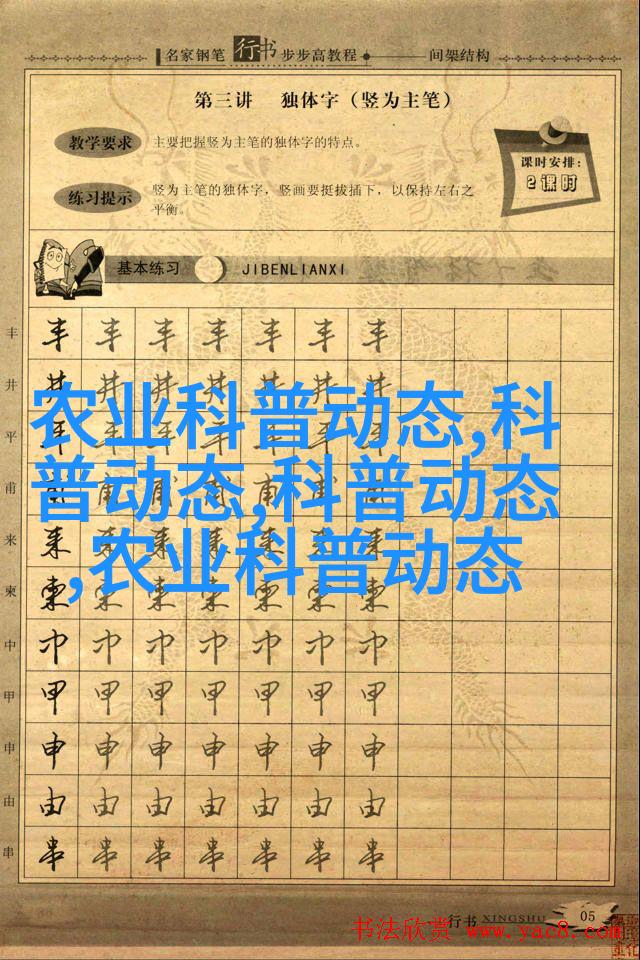 名家钢笔 行书 步步高教程 间架结构
第三讲 独体字（竖为主笔）
教学要求 主要把握竖为主笔的独体字的特点。
课时安排：
2课时
练习提示 竖为主笔的独体字，竖画要挺拔插下，以保持左右之
平衡。
基本练习 JIBENLIANXI
丰 丰 丰 丰 丰 丰 丰 丰
井 井 井 井 井 井 井 井
农业科普动态,科
平 平 平 平 平 平 平 平
普动态,科普动态
甫 甫 甫 甫 甫 甫 甫 甫
来 来 来 来 来 来 来 来
,农业科普动态
柬 柬 柬 柬 柬 柬 柬 柬
中 中 中 中 中 中 中 中
甲 甲 甲 甲 甲 甲 甲 甲
申 申 申 申 申 申 申 申
由 由 由 由 由 由 由 由
串 串 串 串 串 串 串 串
行书 XINGSHU 05
书法欣赏 www.yac8.com